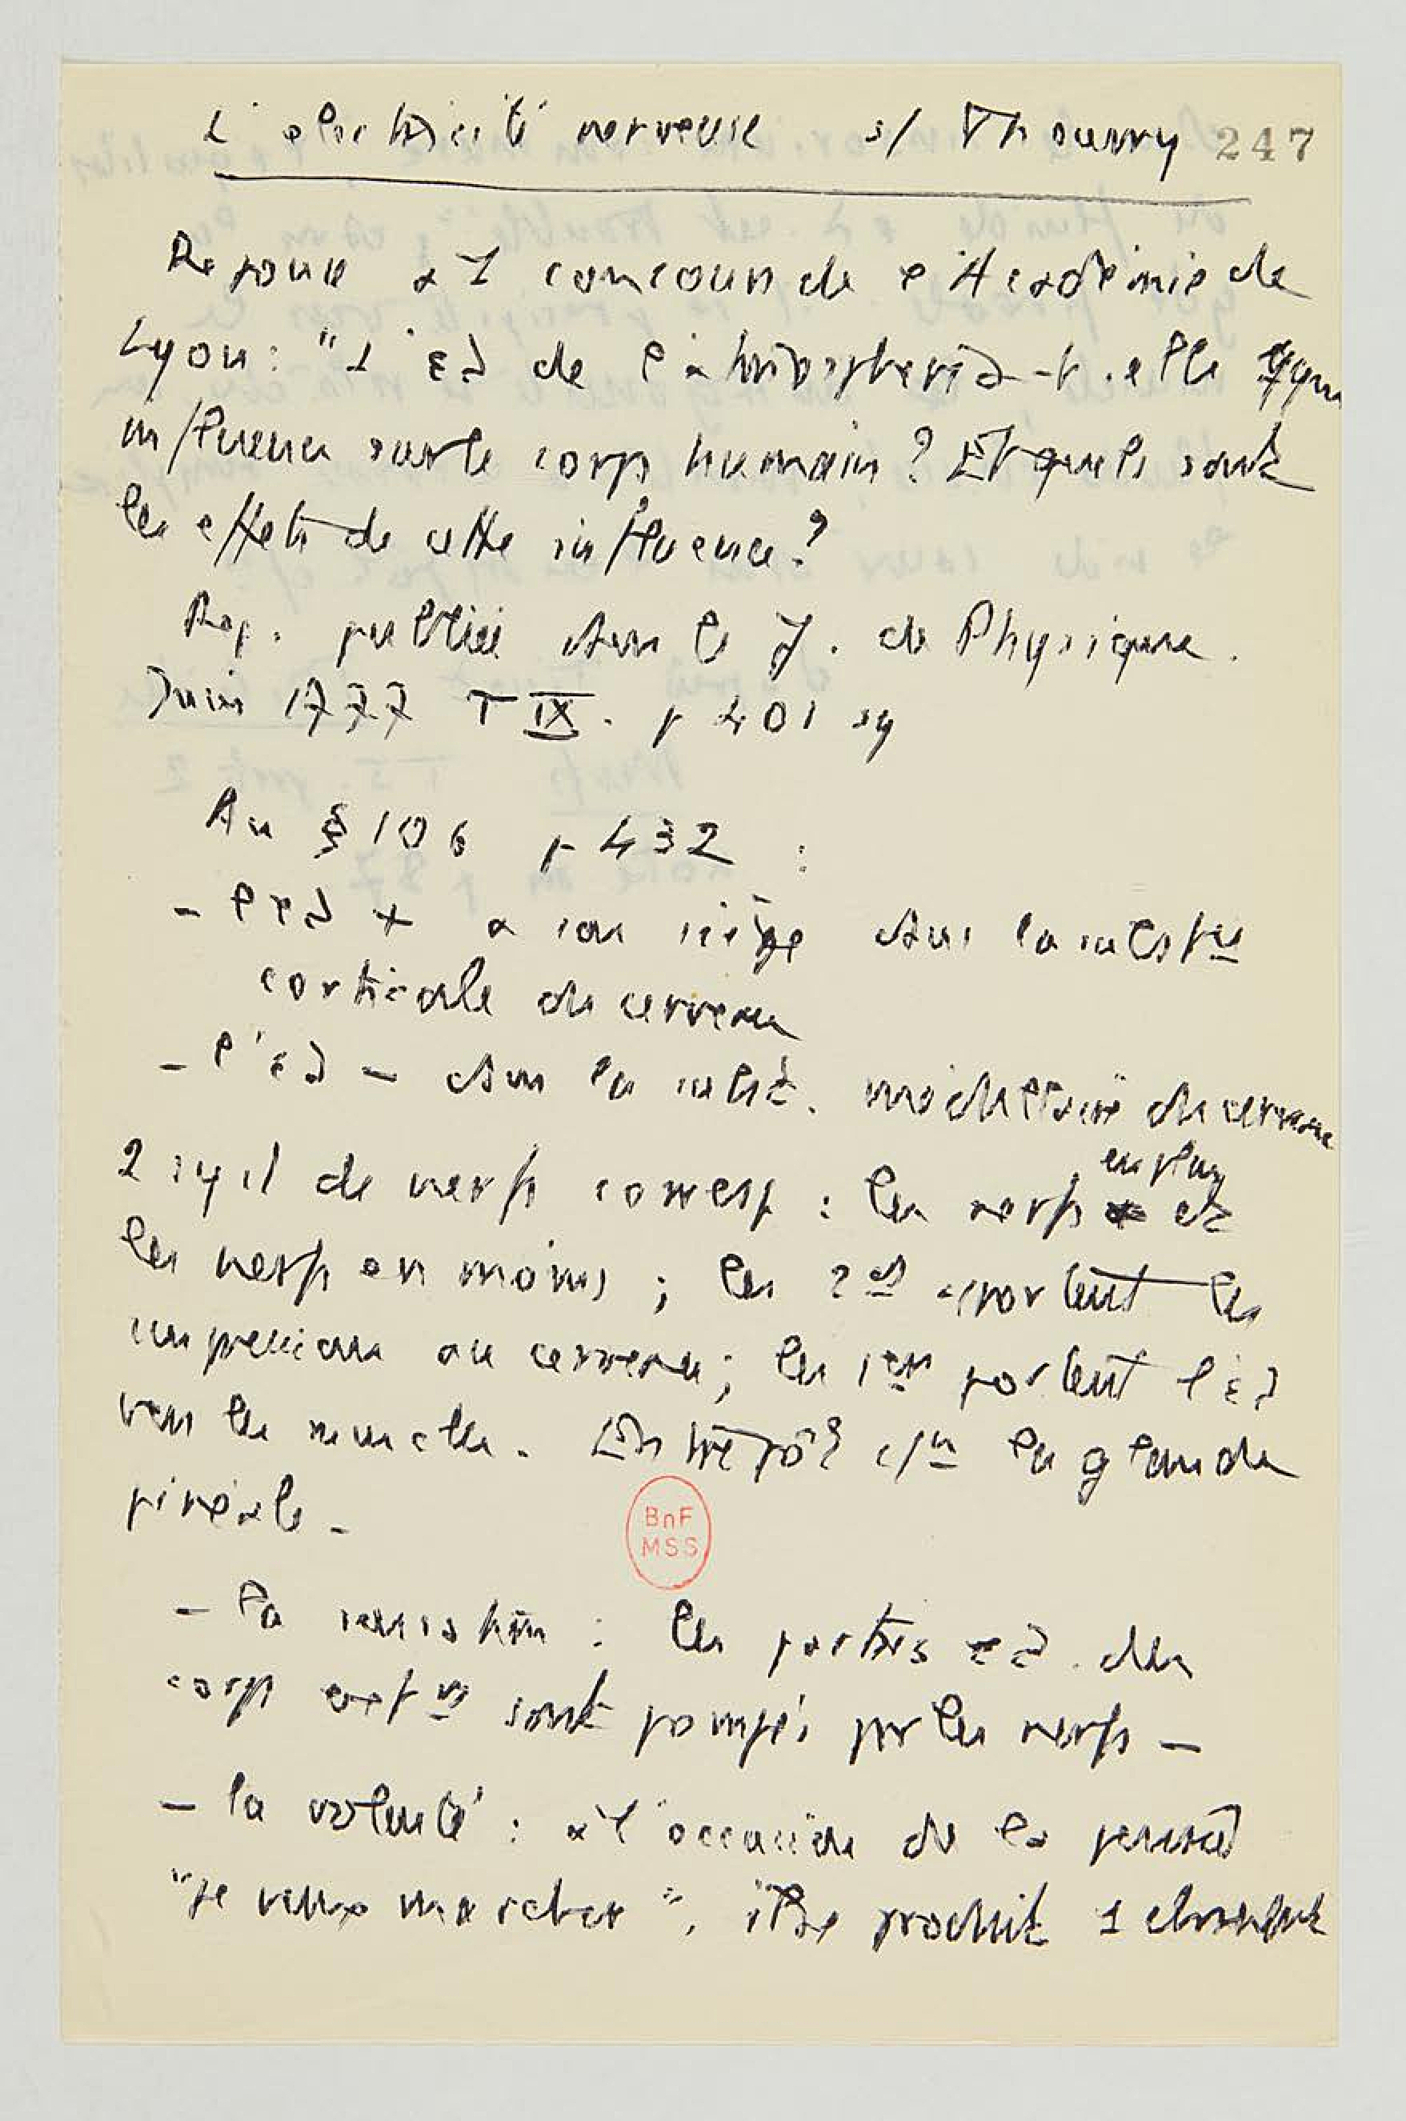 L'électricité nerveuse s/ Thouvry 247
Réponse à 1 concours de l'Académie de
Lyon : "L' εd de l'atmosphère a-t-elle qqu
influence sur le corps humain ? Et quels sont
les effets de cette influence ?
Rep. publiée dans le J. de Physique.
Juin 1777 T IX. p 401 sq
Au § 106 p 432 :
- l'εd + a son siège dans la subst
corticale du cerveau
- l'εd - dans la subst. médullaire du cerveau
en plus
2 syst de nerfs corresp : les nerfs et
les nerfs en moins ; les 2ds apportent les
impressions au cerveau ; les 1ers portent l'εd
vers les muscles. la glande
pinéale -
- la sensation : les parties εd. des
corps ext sont pompés par les nerfs -
- la volonté : à l'occasion de la pensée
"je veux marcher", il se produit 1
BnF
MSS